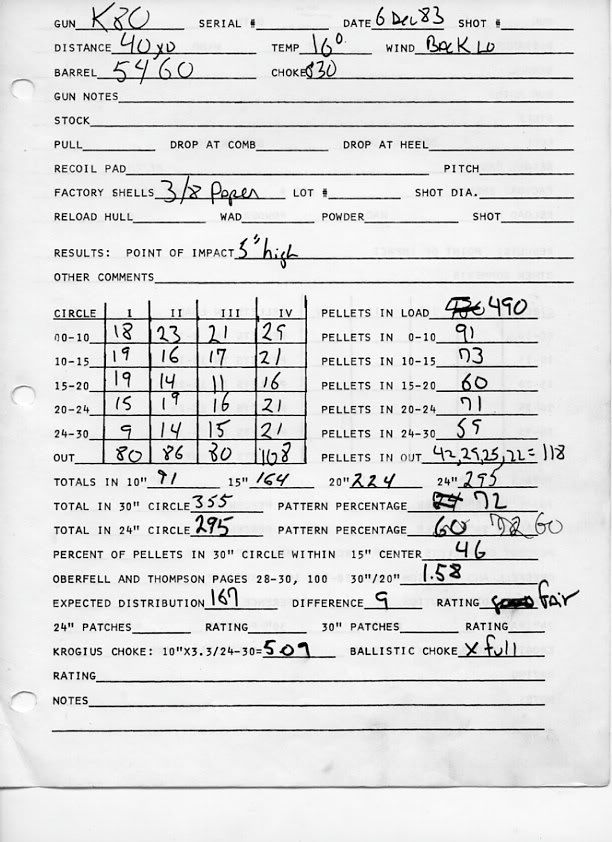 GUN K80 SERIAL # DATE 6 Dec 83 SHOT #
DISTANCE 40 YD TEMP 16° WIND Back LO
BARREL 5460 CHOKE 830
GUN NOTES
STOCK
PULL DROP AT COMB DROP AT HEEL
RECOIL PAD PITCH
FACTORY SHELLS 3/8 Paper LOT # SHOT DIA.
RELOAD HULL WAD POWDER SHOT
RESULTS: POINT OF IMPACT 3" high
OTHER COMMENTS
CIRCLE I II III IV PELLETS IN LOAD 490
00-10 18 23 21 29 PELLETS IN 0-10 91
10-15 19 16 17 21 PELLETS IN 10-15 73
15-20 19 14 11 16 PELLETS IN 15-20 60
20-24 15 19 16 21 PELLETS IN 20-24 71
24-30 9 14 15 21 PELLETS IN 24-30 59
OUT 80 86 80 108 PELLETS IN OUT 42,29,25,22= 118
TOTALS IN 10" 91 15" 164 20" 224 24" 295
TOTAL IN 30" CIRCLE 355 PATTERN PERCENTAGE 72
TOTAL IN 24" CIRCLE 295 PATTERN PERCENTAGE 60 72 60
PERCENT OF PELLETS IN 30" CIRCLE WITHIN 15" CENTER 46
OBERFELL AND THOMPSON PAGES 28-30, 100 30"/20" 1.58
EXPECTED DISTRIBUTION 167 DIFFERENCE 9 RATING fair
24" PATCHES RATING 30" PATCHES RATING
KROGIUS CHOKE: 10"X3.3/24-30= 509 BALLISTIC CHOKE X full
RATING
NOTES